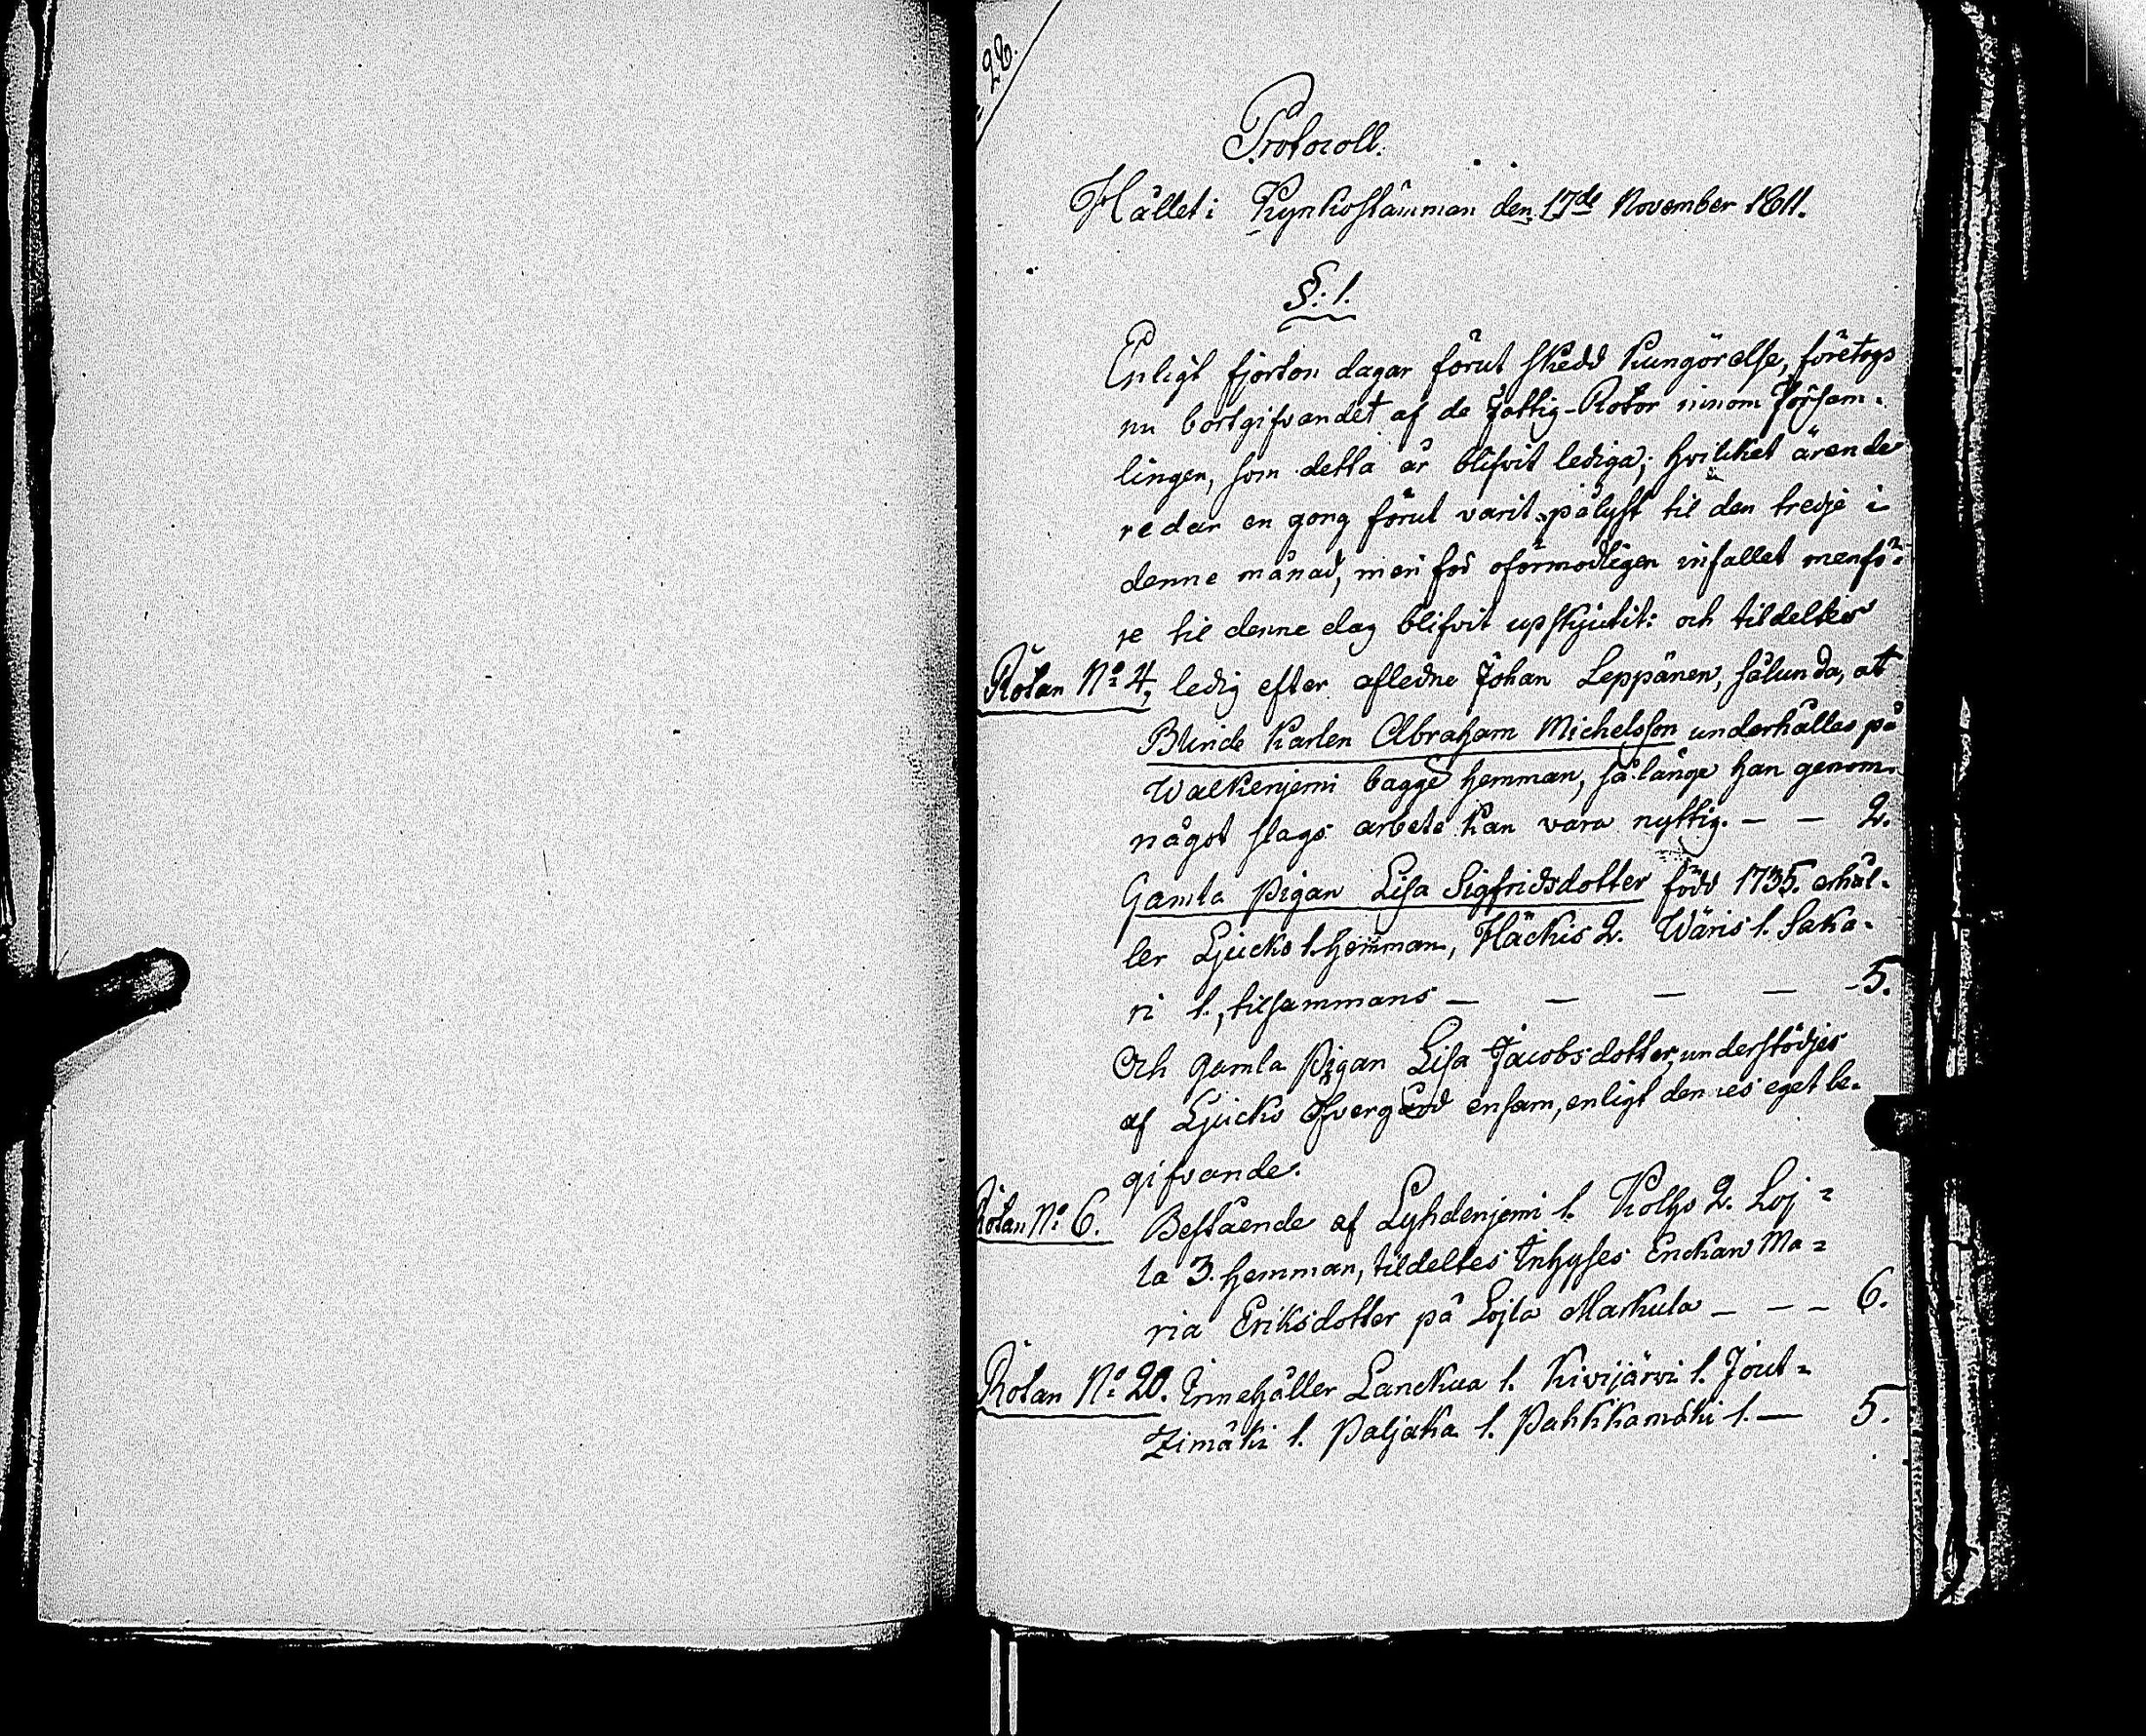 28.
Protocoll.
Hållet i Kyrkostämman den 17de November 1811.
§. 1.
Enligt fjorton dagar förut skedd kungörelse, företogs
nu bortgifvandet af de Fattig-Rotor innom Församlingen
lingen, som detta år blifvit lediga; hvilket ärende
redan en gong förut varit pålyst til den tredje i
denne månad, men för oförmodligen infallet menfö=
re til denne dag blifvit upskjutit: och tildeltes
Rotan No 4, ledig efter afledne Johan Leppänen, sålunda, at
Blinde Karlen Abraham Michelsson underhålles på
Walkenjemi bägge hemman, så länge han genom
något slags arbete kan vara nyttig. — — 2.
Gamla Pigan Lisa Sigfridsdotter född 1735. erhål-
ler Ljucks 1. hemman, Häckis 2. Wäris 1. Saka-
ri 1., tilsammans — — — — 5.
Och gamla Pigan Lisa Jacobsdotter, understödjes
af Ljucks Öfvergård ensam, enligt dennes eget be-
gifvande.
Rotan No 6. Bestående af Lyhdenjemi 1. Kolhs 2. Loj=
la 3. hemman, tildeltes Inhyses Enckan Ma=
ria Eriksdotter på Lojla Markula — — — 6.
Rotan No 20. Innehåller Lanckua 1. Kivijärvi 1. Jout=
zimäki 1. Paljaka 1. Pahkkamäki 1. — 5.